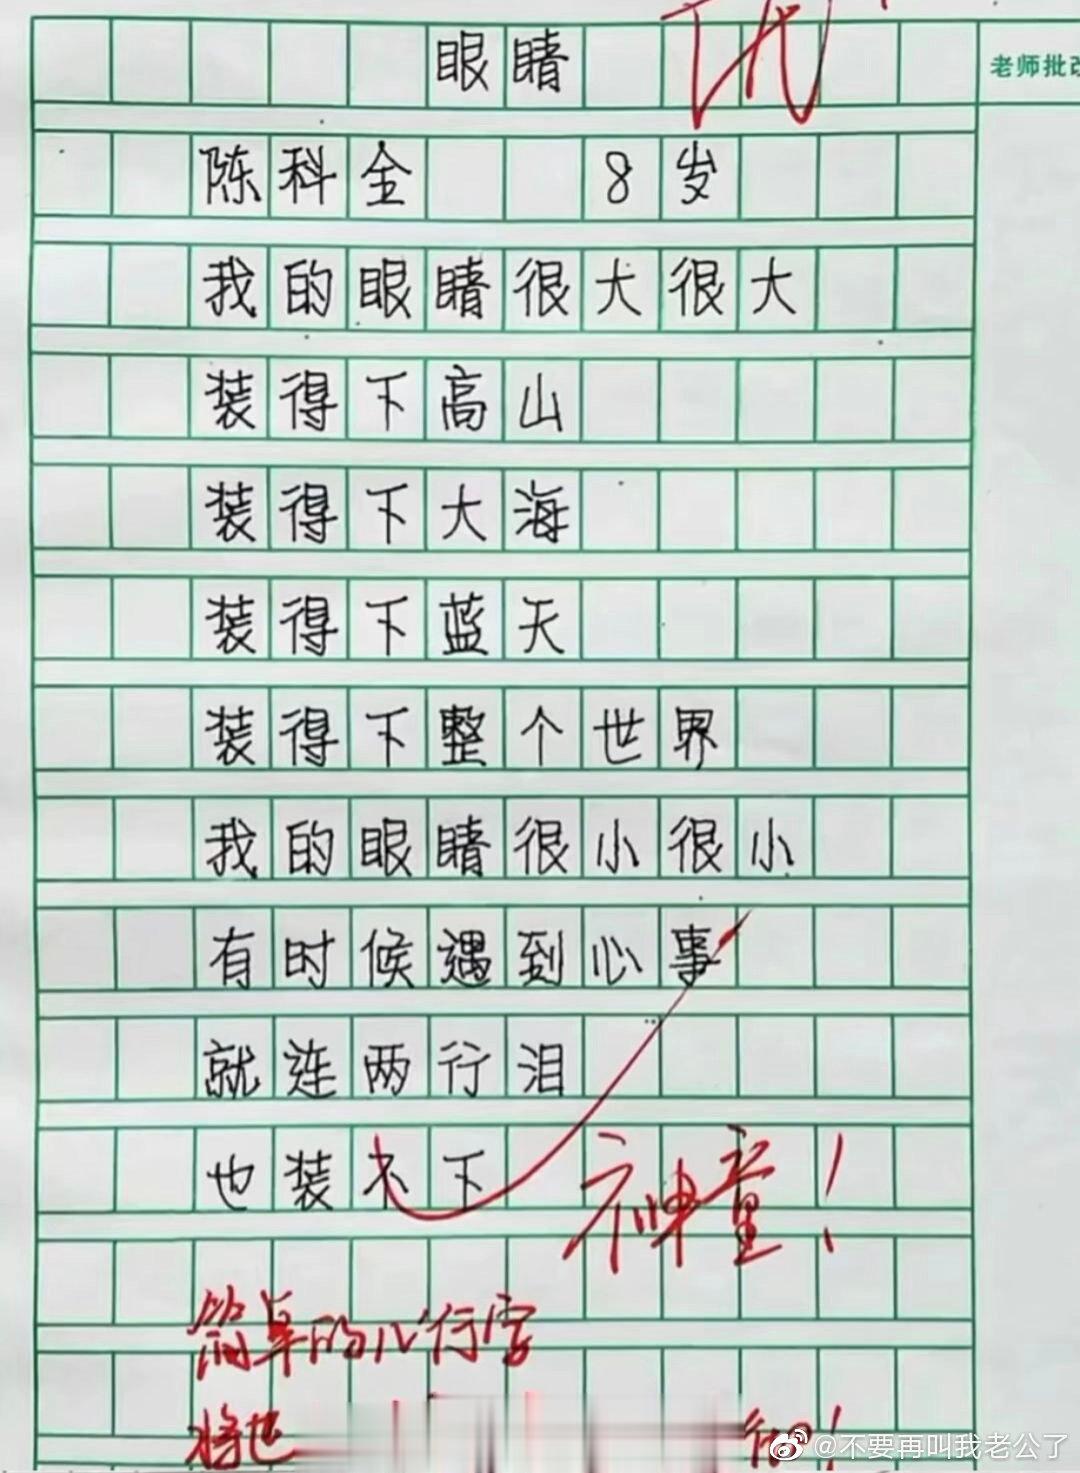 眼睛
优
老师批改
陈科全 8岁
我的眼睛很大很大
装得下高山
装得下大海
装得下蓝天
装得下整个世界
我的眼睛很小很小
有时候遇到心事
就连两行泪
也装不下
神童!
简单的几行字
将世
@不要再叫我老公了